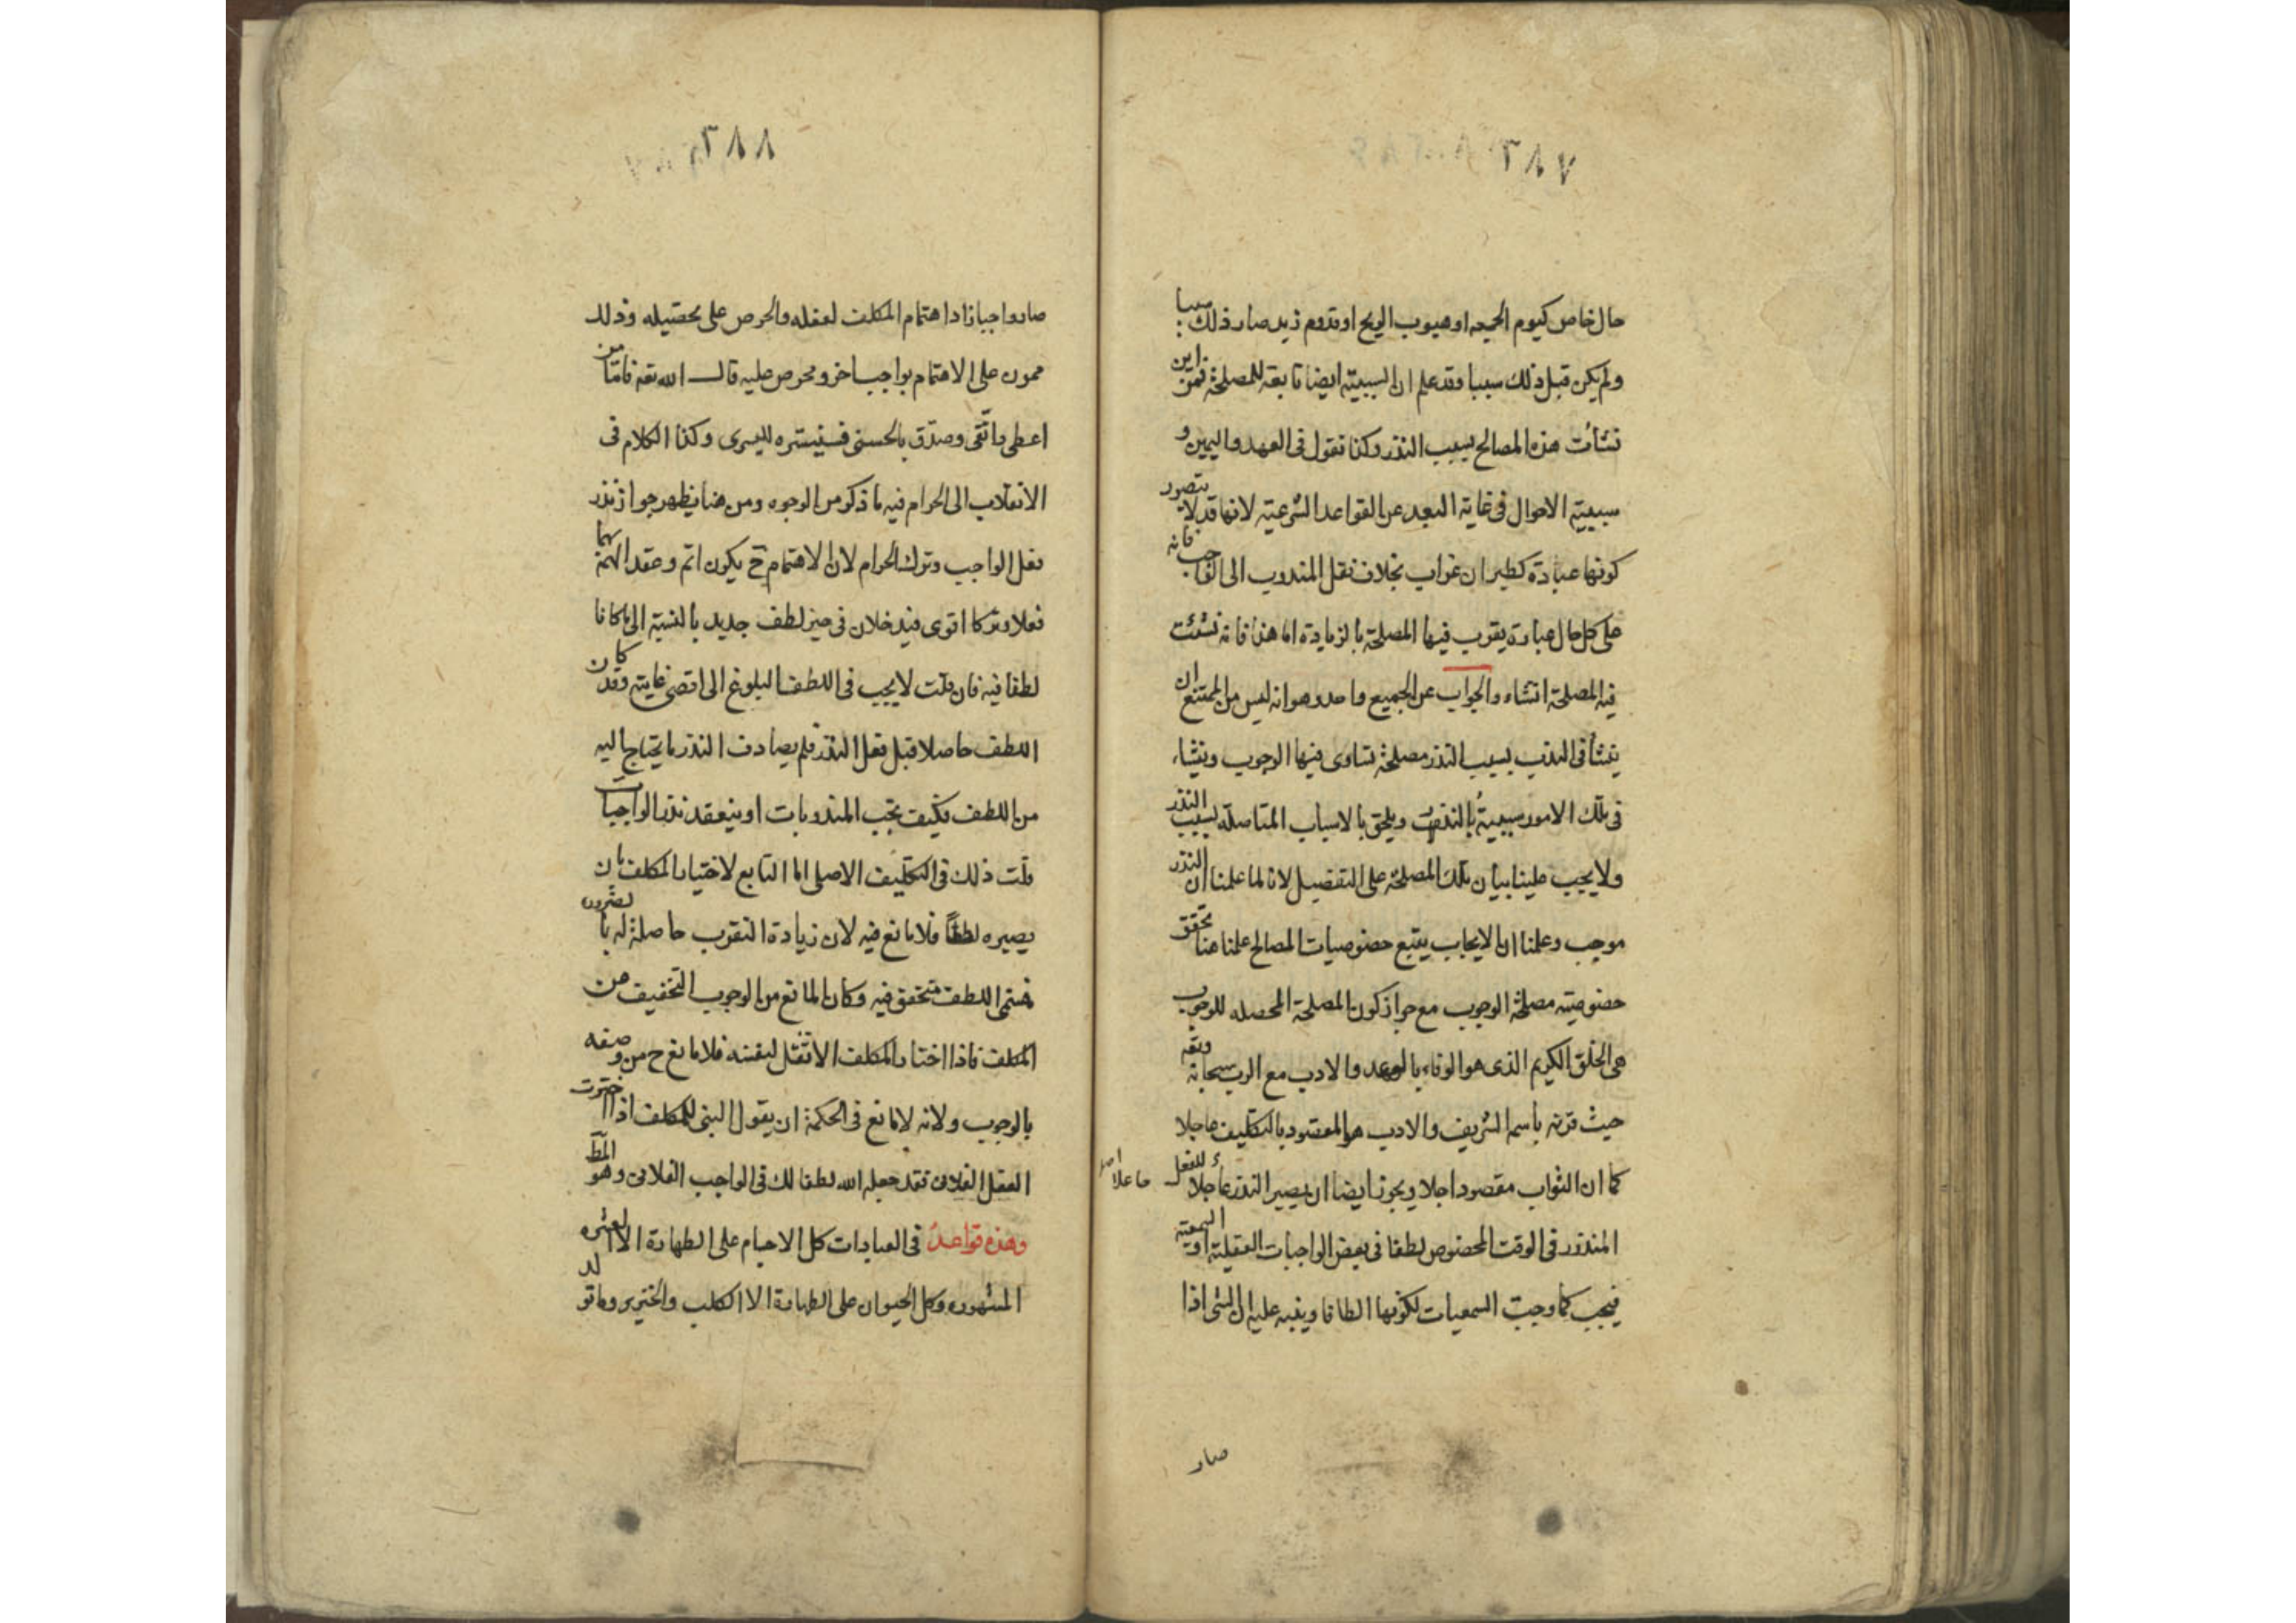 ٣٨٧
حال خاص كيوم الجمعه او هبوب الريح او قدوم زيد صار ذلك سببا
ولم يكن قبل ذلك سببا وقد علم ان السببية ايضا تابعة للمصلحة فمن اين
نشأت هذه المصالح بسبب النذر وكذا نقول فى العهد واليمين و
سببية الاحوال فى غاية البعد عن القواعد الشرعية لانها قد لا يتصور
كونها عبادة كطيران غراب بخلاف نقل المندوب الى الواجب فانه
على كل حال عبادة يقرب فيها المصلحة بالزيادة اما هذا فانه نشئت
فيه المصلحة انشاء والجواب عن الجميع واحد وهو انه ليس من الممتنع ان
ينشأ فى الندب بسبب النذر مصلحة تساوى فيها الوجوب وينشاء
فى تلك الامور سببية بالنذر ويلحق بالاسباب المتاصله بسبب النذر
ولا يجب علينا بيان تلك المصلحة على التفصيل لانا لما علمنا ان النذر
موجب وعلمنا ان الايجاب يتبع خصوصيات المصالح علمنا هنا تحقق
خصوصية مصلحة الوجوب مع جواز كون المصلحة المحصله للوجوب
هى الخلق الكريم الذى هو الوفاء بالوعد والادب مع الرب سبحانه وتعه
حيث قرنه باسمه الشريف والادب هو المقصود بالتكليف عاجلا
كما ان الثواب مقصود اجلا ويجوز ايضا ان يصير النذر عاجلا للفعل
المنذور فى الوقت المخصوص لطفا فى بعض الواجبات العقلية او السمعية
فيجب كما وجبت السمعيات لكونها الطافا وينبه عليه ان الشئ اذا
جاعلا
صار
٣٨٨
صار واجبا زاد اهتمام المكلف لفعله والحرص على تحصيله وذلك
ممرون على الاهتمام بواجب اخر ومحرص عليه قال الله تعه فاما من
اعطى واتقى وصدق بالحسنى فسنيسره لليسرى وكذا الكلام فى
الانقلاب الى الحرام فيه ما ذكر من الوجوه ومن هنا يظهر جواز نذر
فعل الواجب وترك الحرام لان الاهتمام ح يكون اتم وعقد الهمة بهما
فعلا وتركا اقوى فيدخلان فى حيز لطف جديد بالنسبة الى ما كانا
لطفا فيه فان قلت لا يجب فى اللطف البلوغ الى اقصى غايته وقد كان
اللطف حاصلا قبل فعل النذر فلم يصادف النذر ما يحتاج اليه
من اللطف فكيف يجب المندوبات او ينعقد نذر الواجبات
قلت ذلك فى التكليف الاصلى اما التابع لاختيار المكلف بان
يصيره لطفا فلا مانع فيه لان زيادة التقرب حاصلة له بالضرورة
فسمى اللطف متحقق فيه وكان المانع من الوجوب التخفيف عن
المكلف فاذا اختار المكلف الاثقل لنفسه فلا مانع ح من وصفه
بالوجوب ولانه لا مانع فى الحكمة ان يقول النبى للمكلف اذا اخترت
الفعل الفلانى فقد جعله الله لطفا لك فى الواجب الفلانى وهو المط
وهذه قواعد فى العبادات كل الاجسام على الطهارة الا العشره
المشهوره وكل الحيوان على الطهارة الا الكلب والخنزير وما تولد